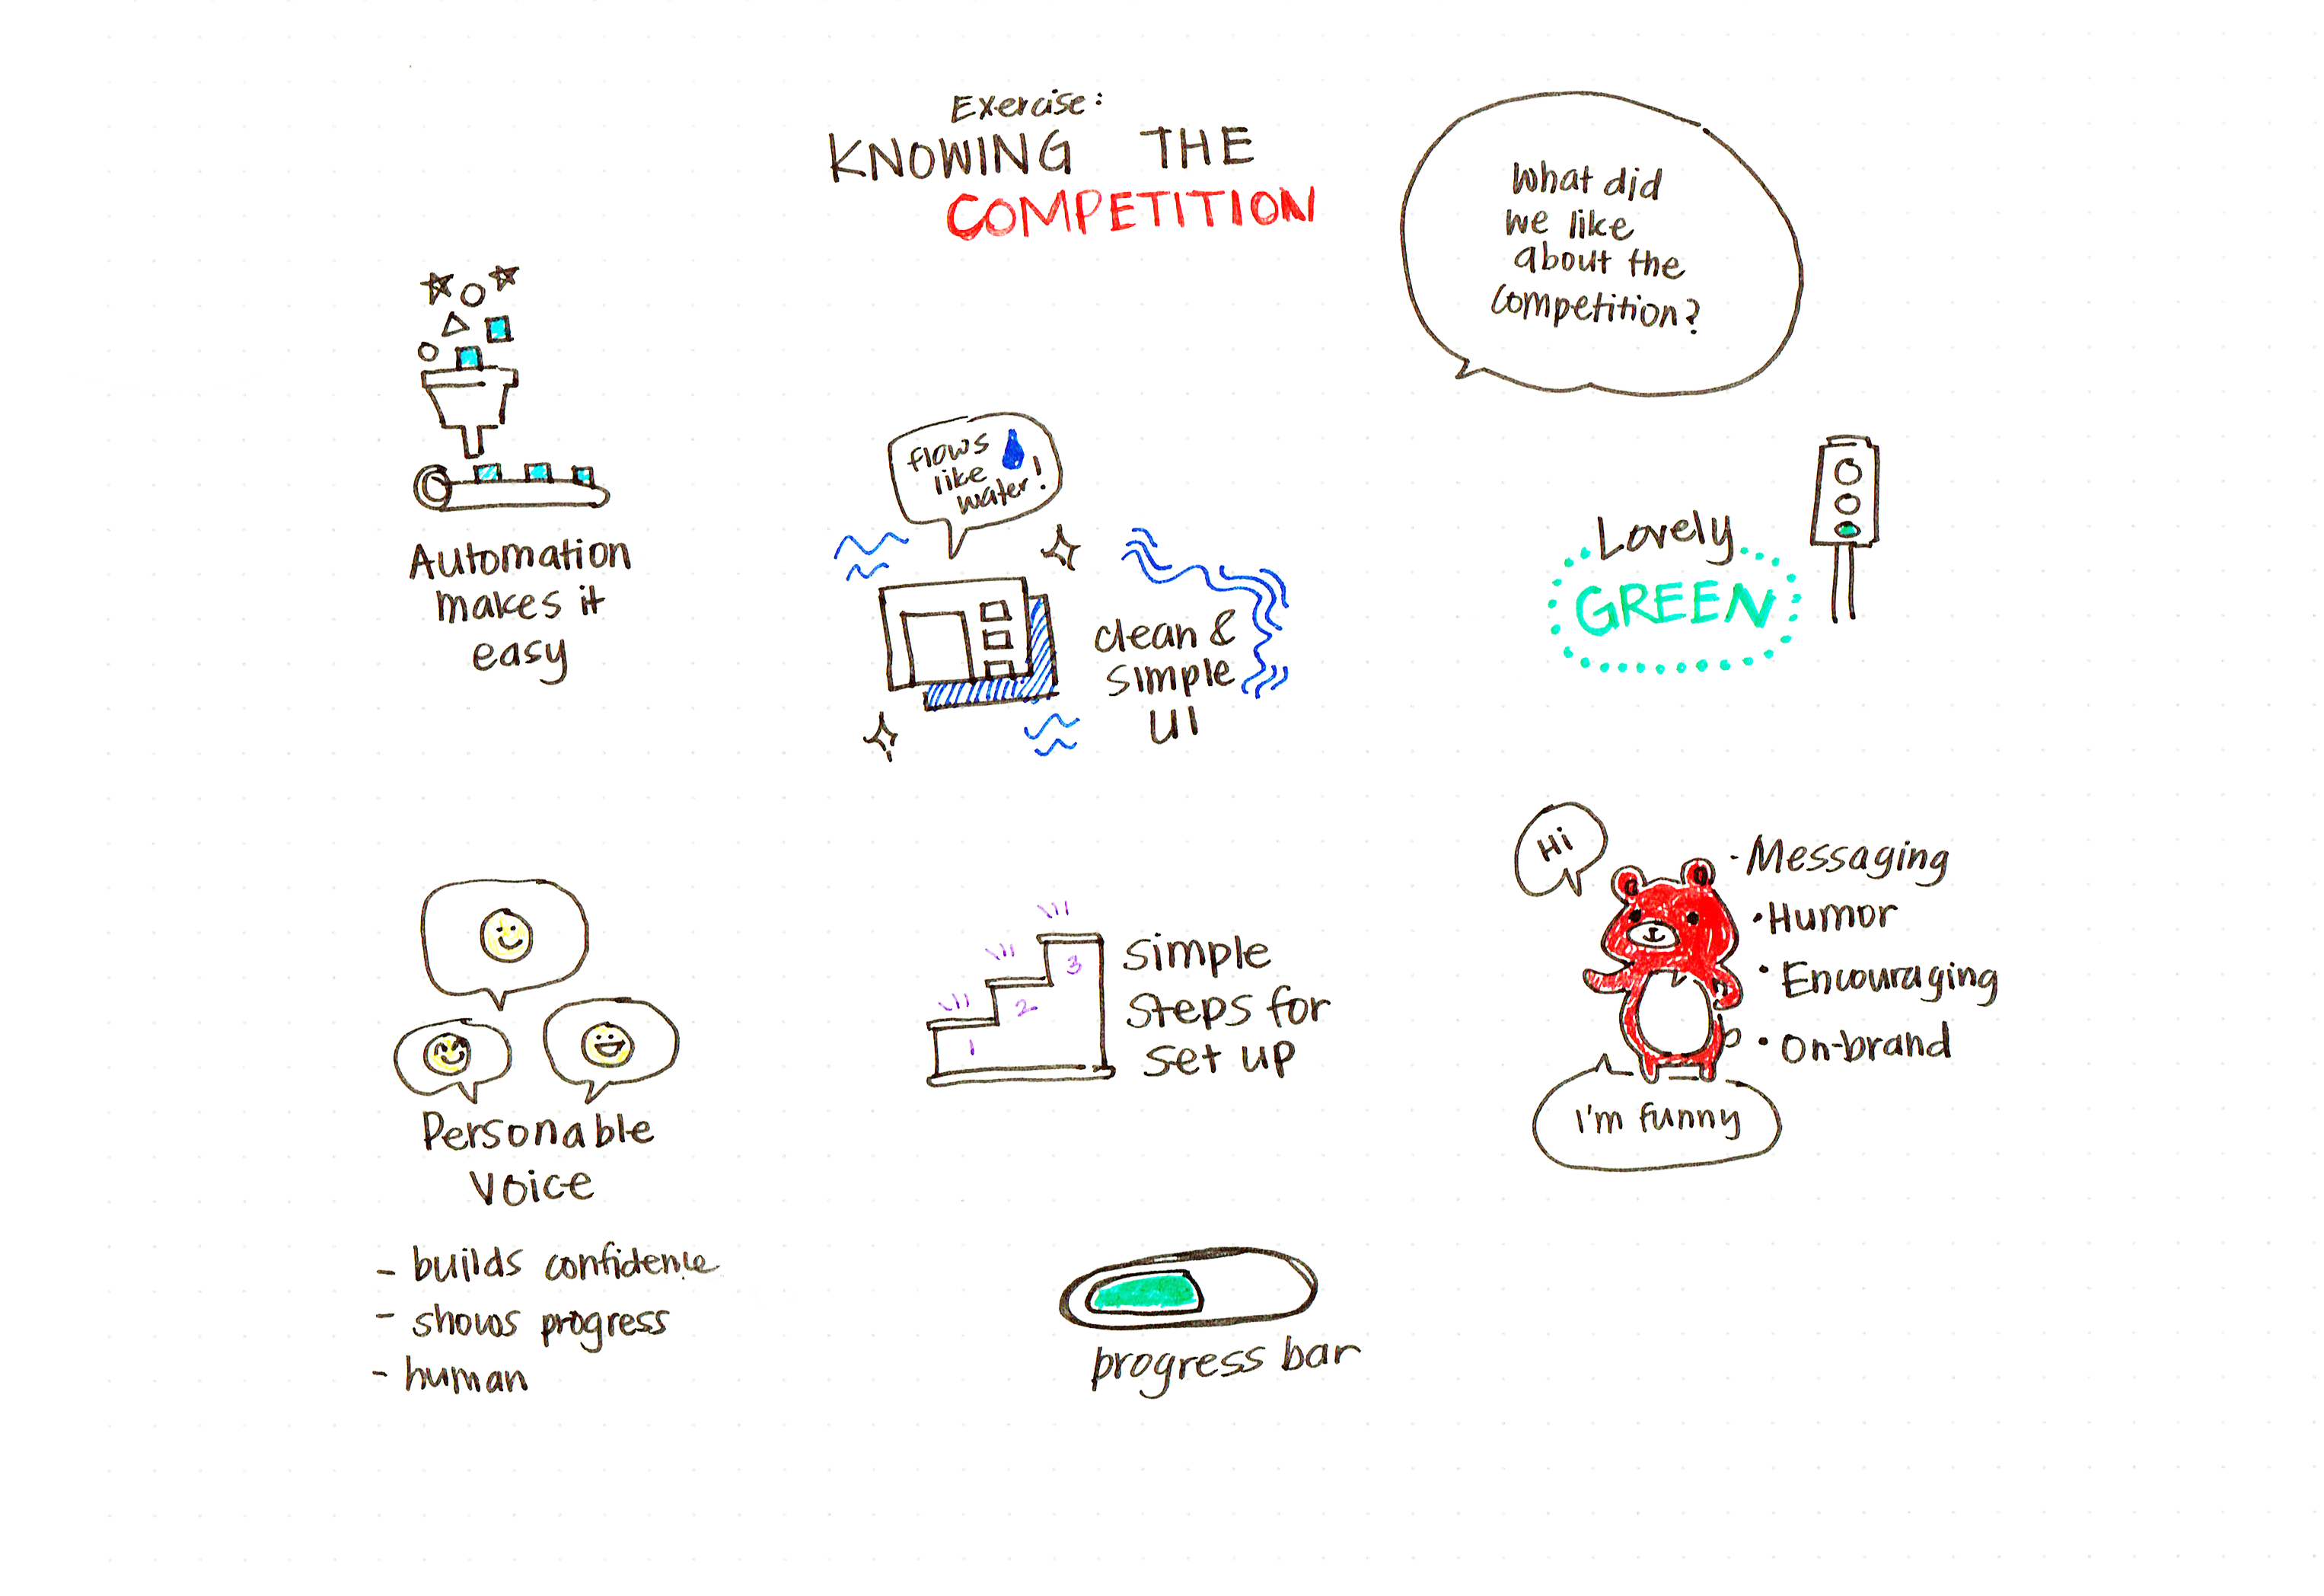 Exercise:
KNOWING THE
COMPETITION
What did
we like
about the
competition?
Automation
makes it
easy
flows
like
water!
clean &
simple
UI
Lovely
GREEN
Personable
Voice
- builds confidence
- shows progress
- human
1
2
3
simple
steps for
set up
progress bar
Hi
- Messaging
• Humor
• Encouraging
• On-brand
I'm funny